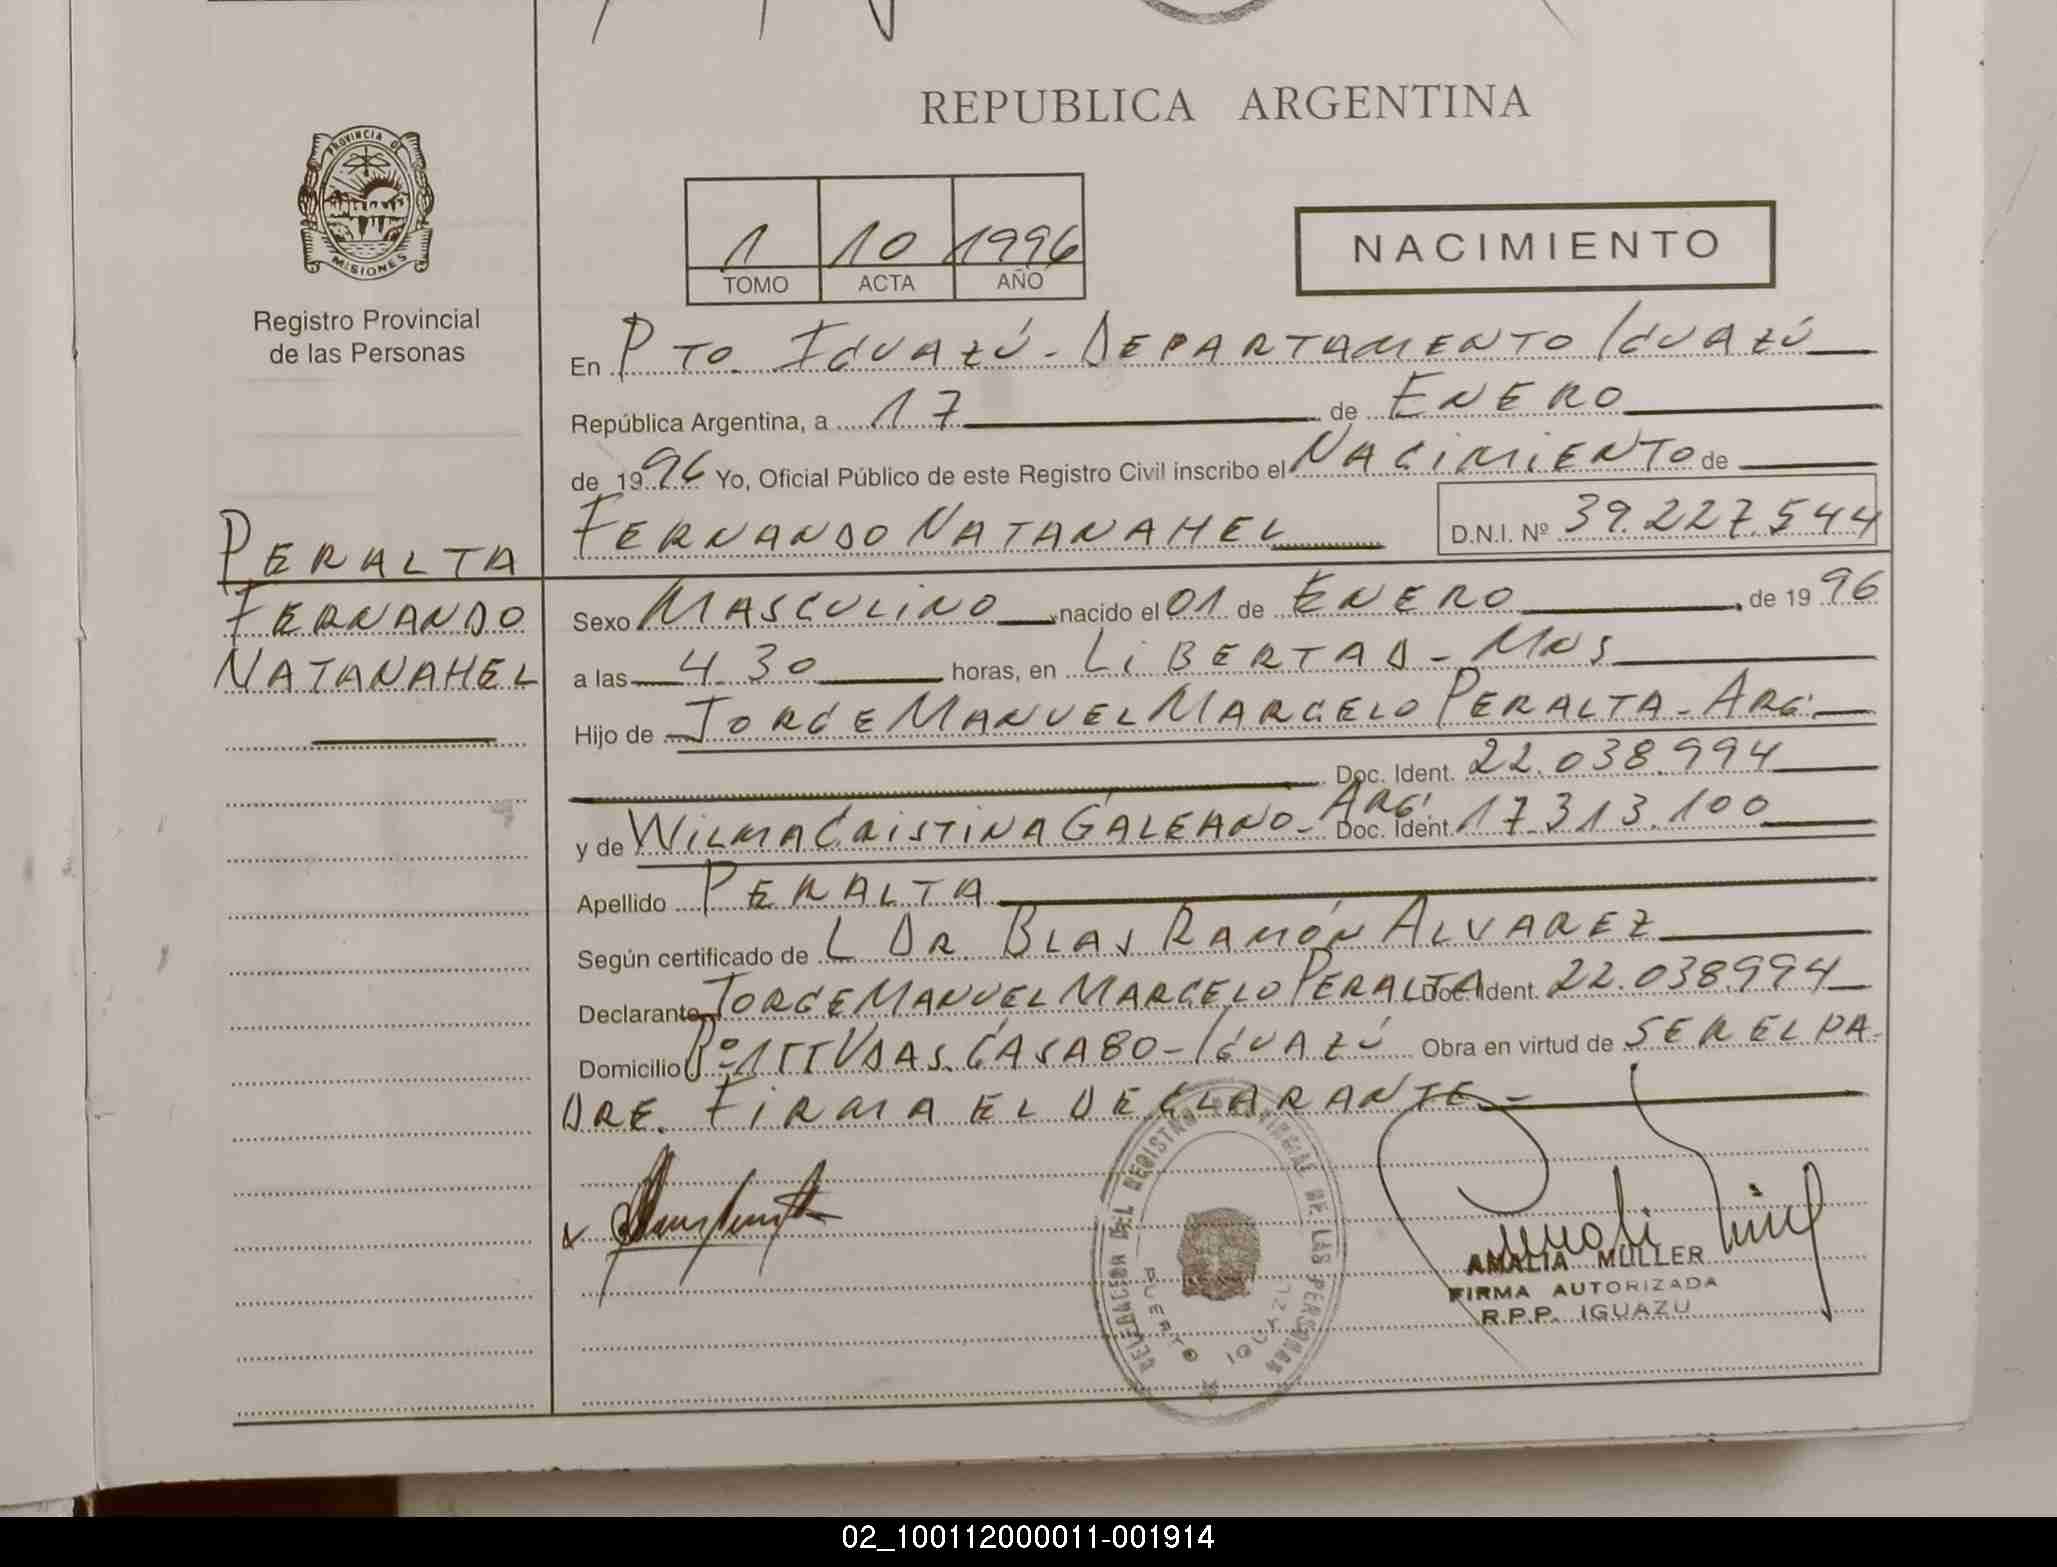 REPUBLICA ARGENTINA
PROVINCIA DE
MISIONES
Registro Provincial
de las Personas
1 10 1996
TOMO ACTA AÑO
NACIMIENTO
En PTO. IGUAZÚ - DEPARTAMENTO IGUAZÚ
República Argentina, a 17 de ENERO
de 1996 Yo, Oficial Público de este Registro Civil inscribo el NACIMIENTO de
FERNANDO NATANAHEL D.N.I. Nº 39.227.544
PERALTA
FERNANDO
NATANAHEL
Sexo MASCULINO nacido el 01 de ENERO de 1996
a las 4 30 horas, en LIBERTAD - MNS
Hijo de JORGE MANUEL MARCELO PERALTA - ARG.
Doc. Ident. 22.038.994
y de WILMA CRISTINA GALEANO - ARG. Doc. Ident. 17.313.100
Apellido PERALTA
Según certificado de L DR BLAS RAMÓN ALVAREZ
Declarante JORGE MANUEL MARCELO PERALTA Doc. Ident. 22.038.994
Domicilio Bº 1 VDAS. CASA 80 - IGUAZÚ Obra en virtud de SER EL PA-
DRE. FIRMA EL DECLARANTE. -
DELEGACION DEL REGISTRO PROVINCIAL DE LAS PERSONAS
PUERTO IGUAZU
AMALIA MULLER
FIRMA AUTORIZADA
R.P.P. IGUAZU
02_100112000011-001914